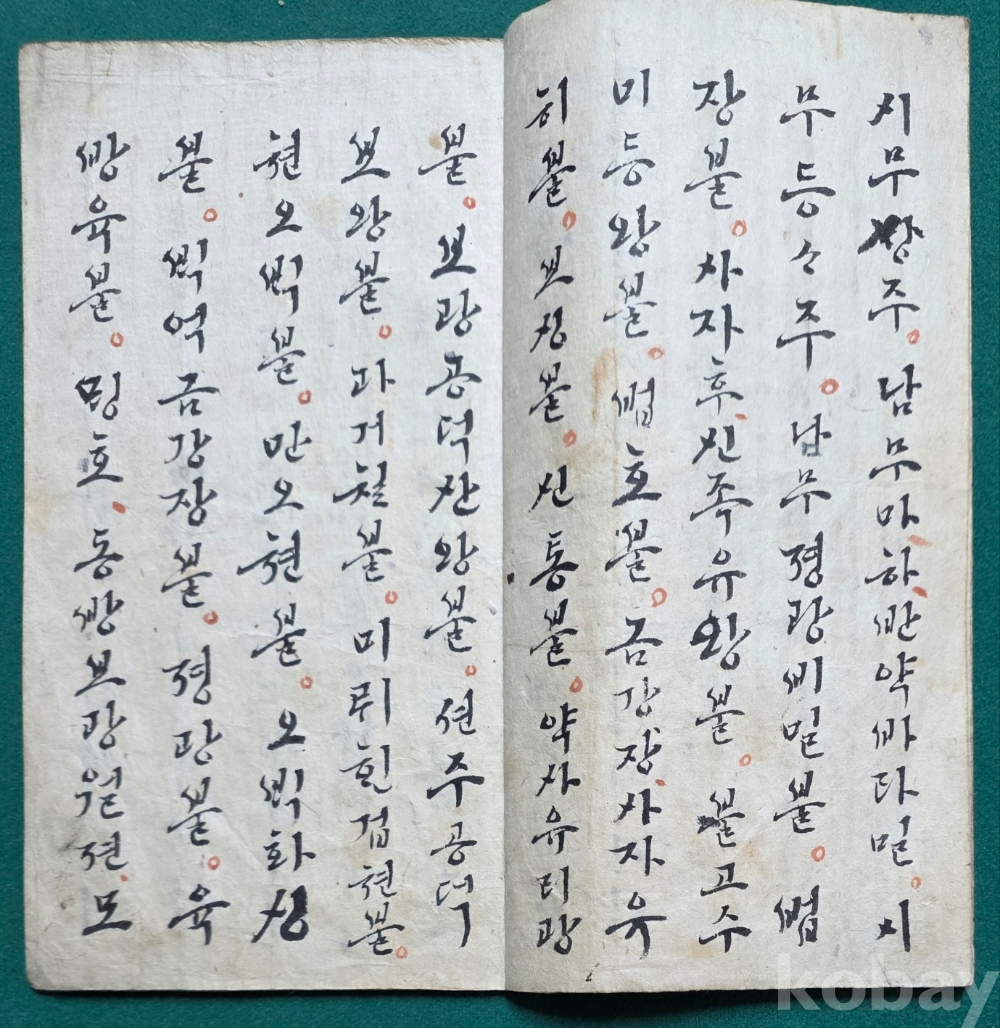 시무쌍주。남무마하반약바라밀。시
무등々주。남무졍광비밀불。법
장불。사자후신족유왕불。불고수
미등왕불。법호불。금강장사자유
히불。보싱불。신통불。약사유리광
불。보광공덕산왕불。션주공덕
보왕불。과거칠불。미릭현겁쳔불。
쳔오빅불。만오쳔불。오빅화싱
불。빅억금강장불。졍광불。육
방육불。명호、동방보광월젼모
kobay